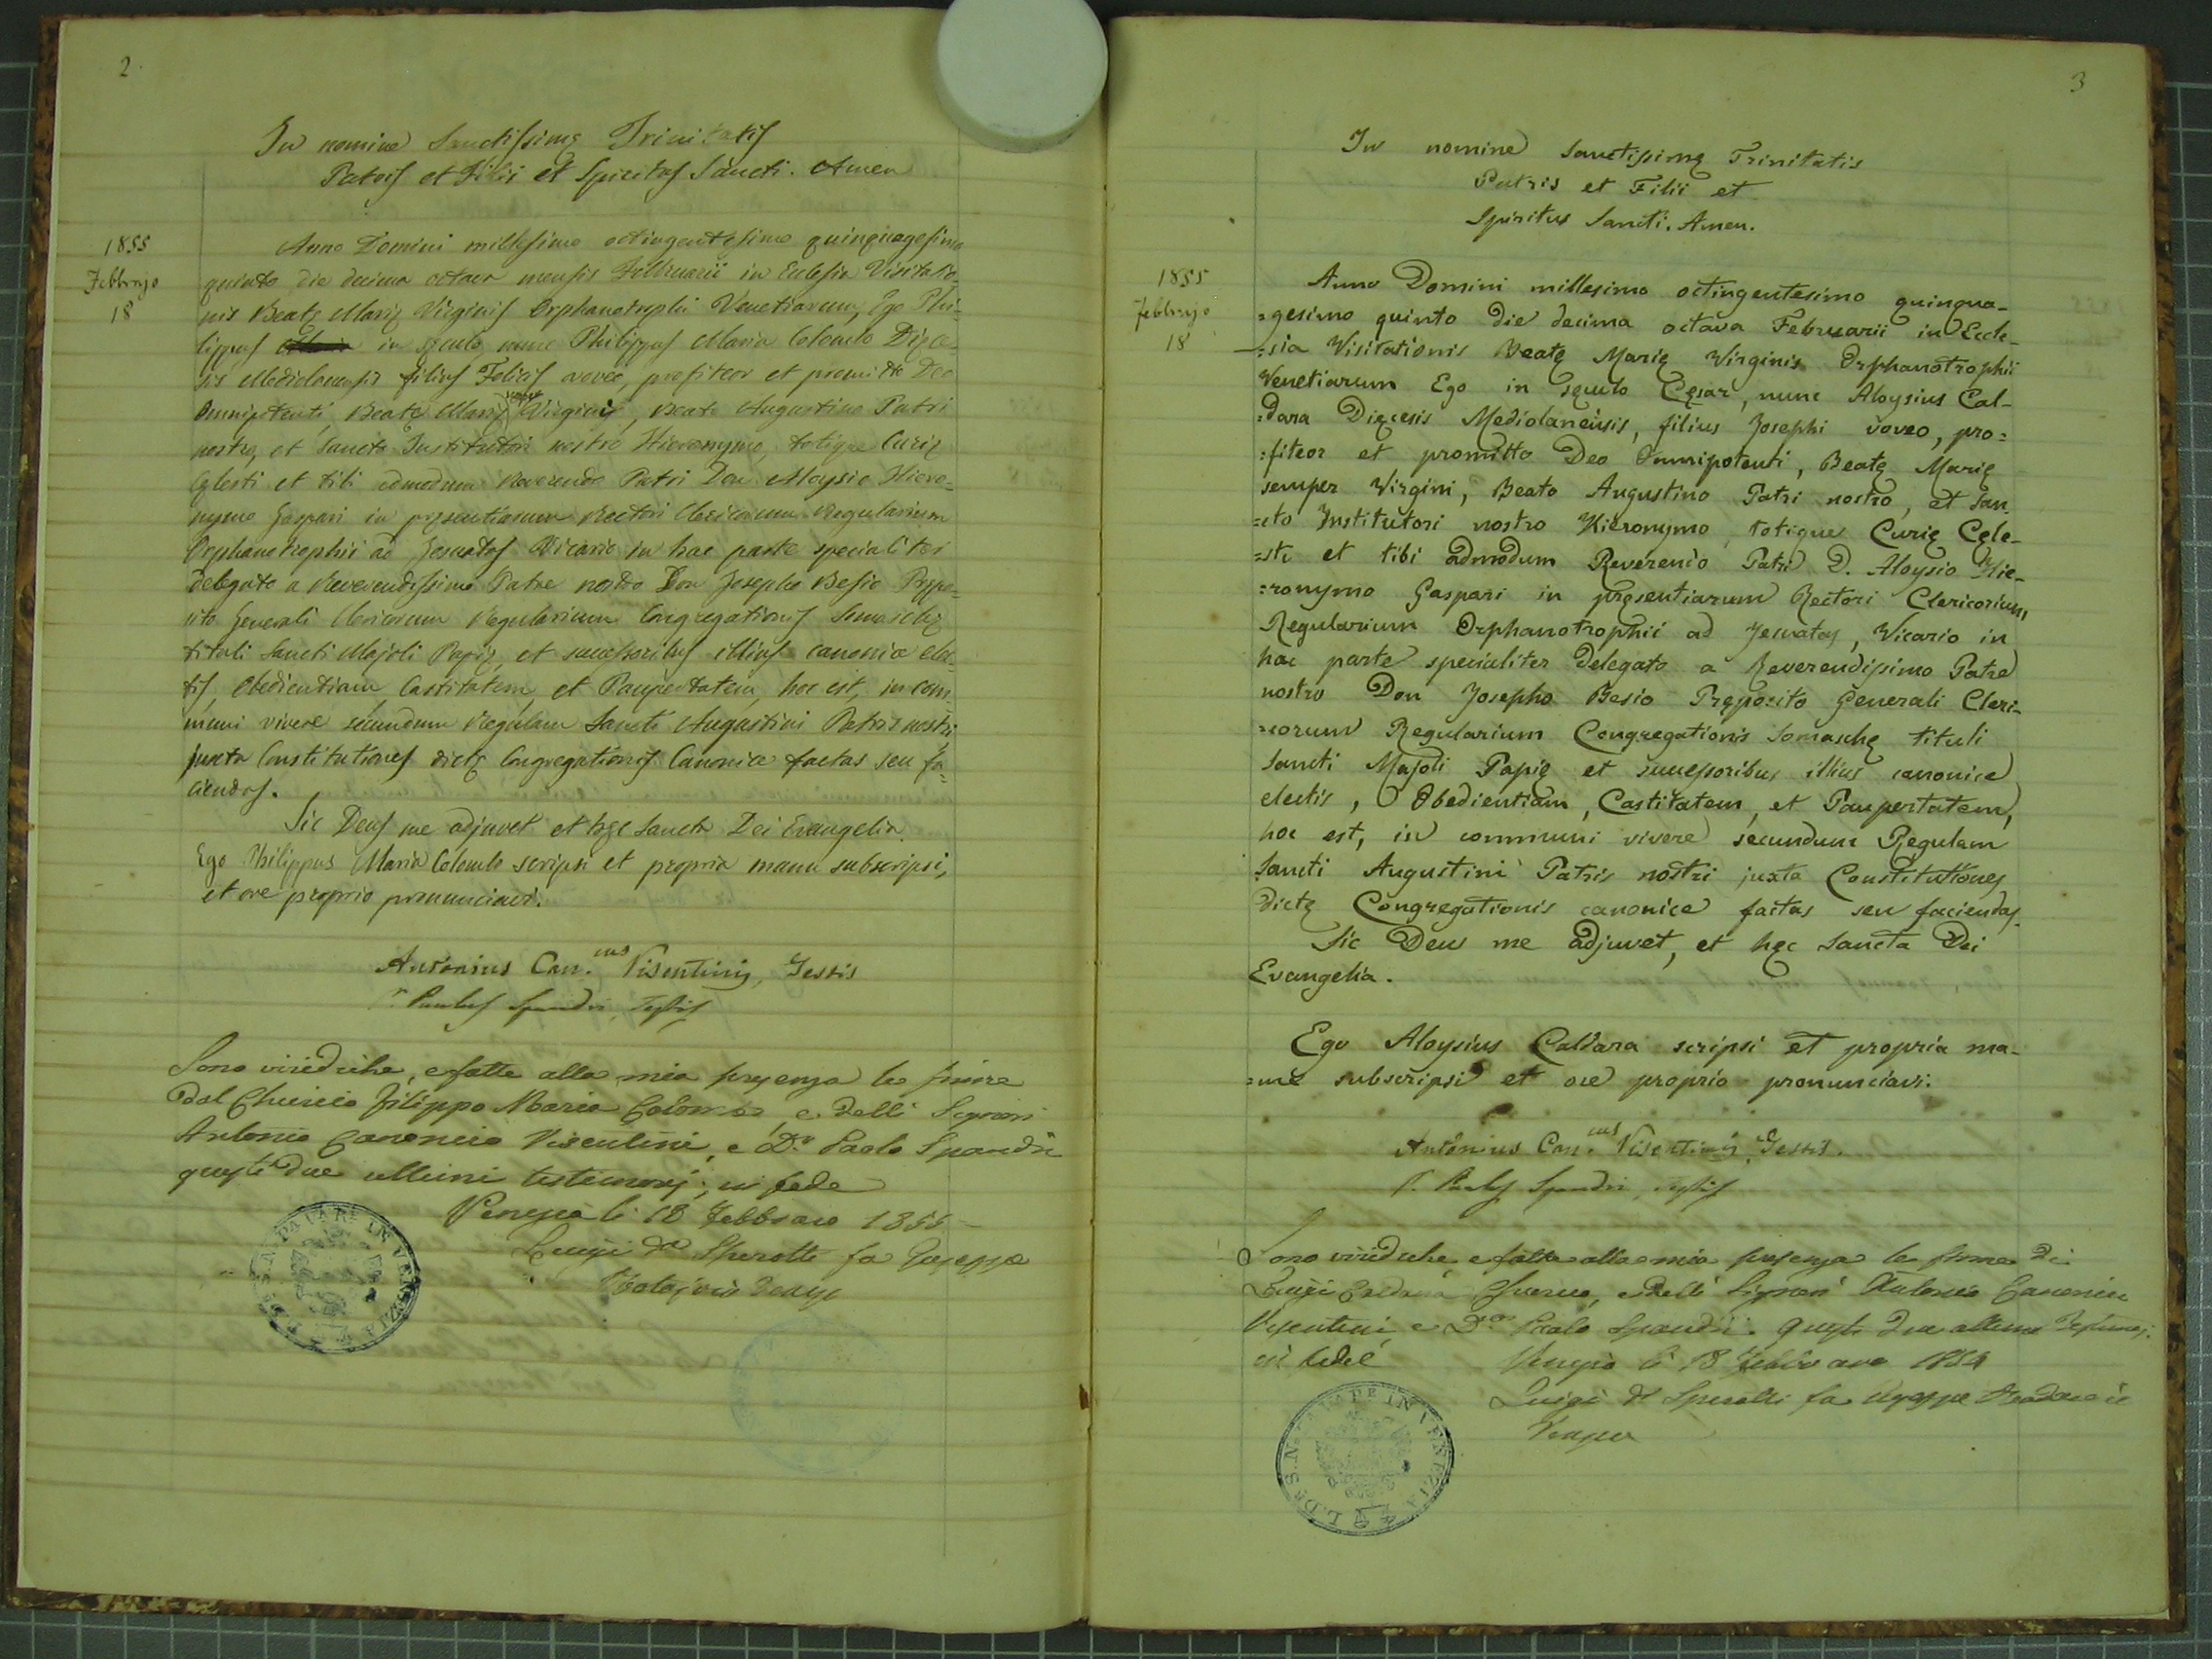 2.
In nomine Sanctissimę Trinitatis
Patris et Filii et Spiritus Sancti. Amen
1855
Febbrajo
18
Anno Domini millesimo octingentesimo quinquagesimo
quinto die decima octava mensis Februarii in Ecclesia Visitatio-
nis Beatę Marię Virginis Orphanotrophii Venetiarum, Ego Phi-
lippus in sęculo, nunc Philippus Maria Colombo Dięce-
sis Mediolanensis filius Felicis voveo, profiteor et promitto Deo
Omnipotenti, Beatę Marię semper Virgini, Beato Augustino Patri
nostro, et Sancto Institutori nostro Hieronymo, totique Curię
Cęlesti et tibi admodum Reverendo Patri Don Aloysio Hiero-
nymo Gaspari in pręsentiarum Rectori Clericorum Regularium
Orphanotrophii ad Jesuatos Vicario in hac parte specialiter
delegato a Reverendissimo Patre nostro Don Josepho Besio Prępo-
sito Generali Clericorum Regularium Congregationis Somaschę
tituli Sancti Majoli Papię, et successoribus illius canonice elec-
tis, Obedientiam, Castitatem, et Paupertatem, hoc est, in com-
muni vivere secundum Regulam Sancti Augustini Patris nostri
juxta Constitutiones dictę Congregationis Canonice factas seu fa-
ciendas.
Sic Deus me adjuvet et hęc Sancta Dei Evangelia.
Ego Philippus Maria Colombo scripsi et propria manu subscripsi,
et ore proprio pronunciavi.
Antonius Can.cus Visentinis, Testis
Paulus Spandri, Testis
Sono viridiche, e fatte alla mia presenza le firme
dal Chierico Filippo Maria Colombo, e delli Signori
Antonio Canonico Visentini, e Dr. Paolo Spandri
questi due ultimi testimonj; in fede
Venezia li 18 Febbraio 1855
Luigi Dr Sperotti fa Giuseppe
PATAPE IN VENEZIA
3
In nomine Sanctissimę Trinitatis
Patris et Filii et
Spiritus Sancti. Amen.
1855
Febbrajo
18
Anno Domini millesimo octingentesimo quinqua-
=gesimo quinto die decima octava Februarii in Eccle-
=sia Visitationis Beatę Marię Virginis Orphanotrophii
Venetiarum Ego in sęculo Cęsar, nunc Aloysius Cal-
=dara Dięcesis Mediolanensis, filius Josephi voveo, pro=
=fiteor et promitto Deo Omnipotenti, Beatę Marię
semper Virgini, Beato Augustino Patri nostro, et San-
=cto Institutori nostro Hieronymo, totique Curię Cęle-
=sti et tibi admodum Reverendo Patri D. Aloysio Hie-
=ronymo Gaspari in pręsentiarum Rectori Clericorum,
Regularium Orphanotrophii ad Jesuatos, Vicario in
hac parte specialiter delegato a Reverendissimo Patre
nostro Don Josepho Besio Pręposito Generali Cleri-
=corum Regularium Congregationis Somaschę tituli
Sancti Majoli Papię et successoribus illius canonice
electis, Obedientiam, Castitatem, et Paupertatem,
hoc est, in communi vivere secundum Regulam
Sancti Augustini Patris nostri juxta Constitutiones
dictę Congregationis canonice factas seu faciendas.
Sic Deus me adjuvet, et hęc Sancta Dei
Evangelia.
Ego Aloysius Caldara scripsi et propria ma-
=nu subscripsi et ore proprio pronunciavi.
Antonius Can.cus Visentinis, Testis.
Paulus Spandri, Testis
Sono viridiche e fatte alla mia presenza le firme di
Luigi Caldara Chierico, e delli Signori Antonio Canonico
Visentini, e Dr. Paolo Spandri. questi due ultimi Testimonj.
in fede Venezia li 18 Febbraio 1854
Luigi Dr Sperotti fa Giuseppe
Venezia
L. DE S.N. PATAPE IN VENEZIA